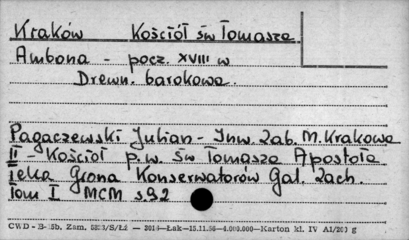 Kraków Kościół św Tomasza
Ambona - pocz. XVIII w
Drewn. barokowa.
Pagaczewski Julian - Inw. Zab. M. Krakowa
II - Kościół p.w. Św Tomasza Apostoła
Teka Grona Konserwatorów Gal. Zach.
Tom I MCM s 92
CWD - B-15b. Zam. /S/Łż — 2014—Łak—15.11.55—4.000.000—Karton kl. IV A1/200 g